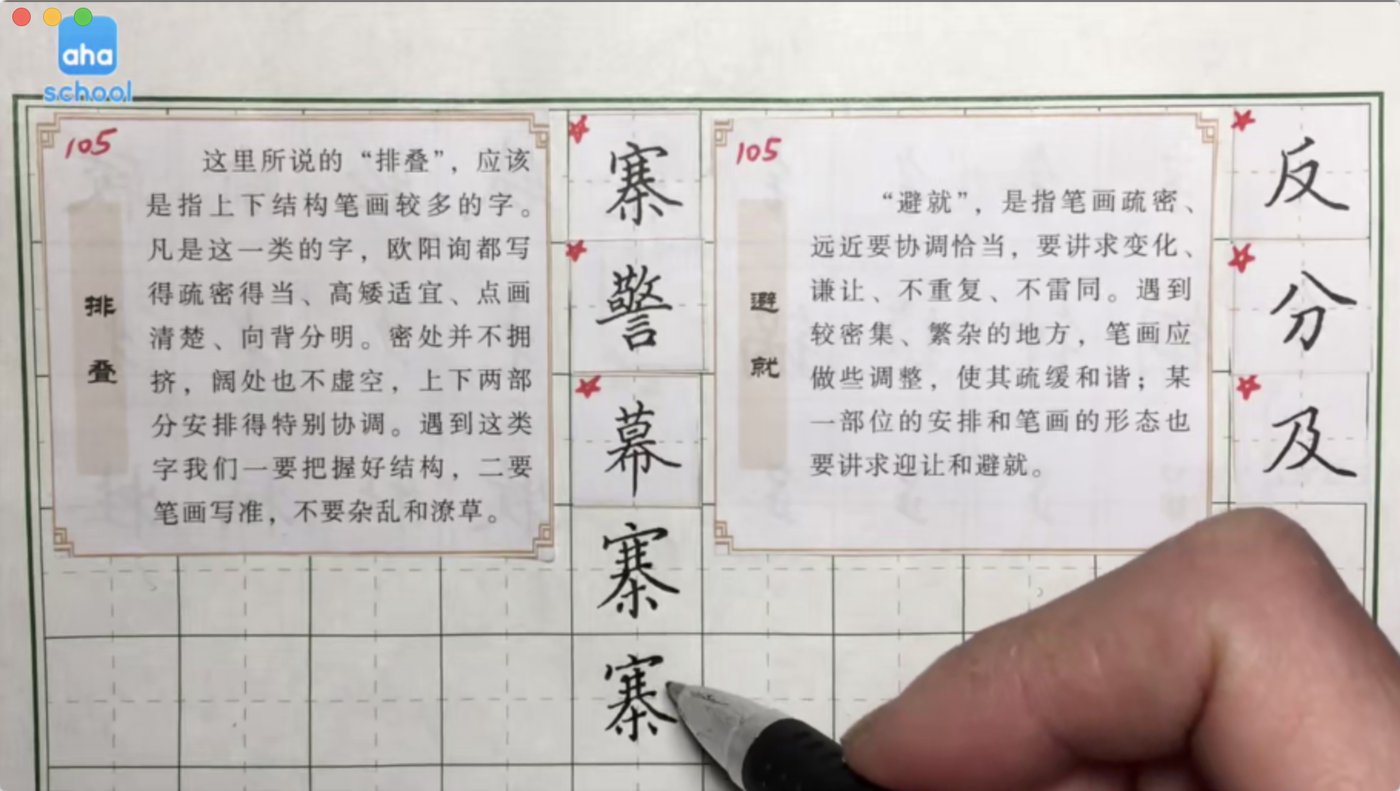 aha
school
105
排叠
这里所说的“排叠”，应该
是指上下结构笔画较多的字。
凡是这一类的字，欧阳询都写
得疏密得当、高矮适宜、点画
清楚、向背分明。密处并不拥
挤，阔处也不虚空，上下两部
分安排得特别协调。遇到这类
字我们一要把握好结构，二要
笔画写准，不要杂乱和潦草。
寨
警
幕
寨
寨
105
避就
“避就”，是指笔画疏密、
远近要协调恰当，要讲求变化、
谦让、不重复、不雷同。遇到
较密集、繁杂的地方，笔画应
做些调整，使其疏缓和谐；某
一部位的安排和笔画的形态也
要讲求迎让和避就。
反
分
及